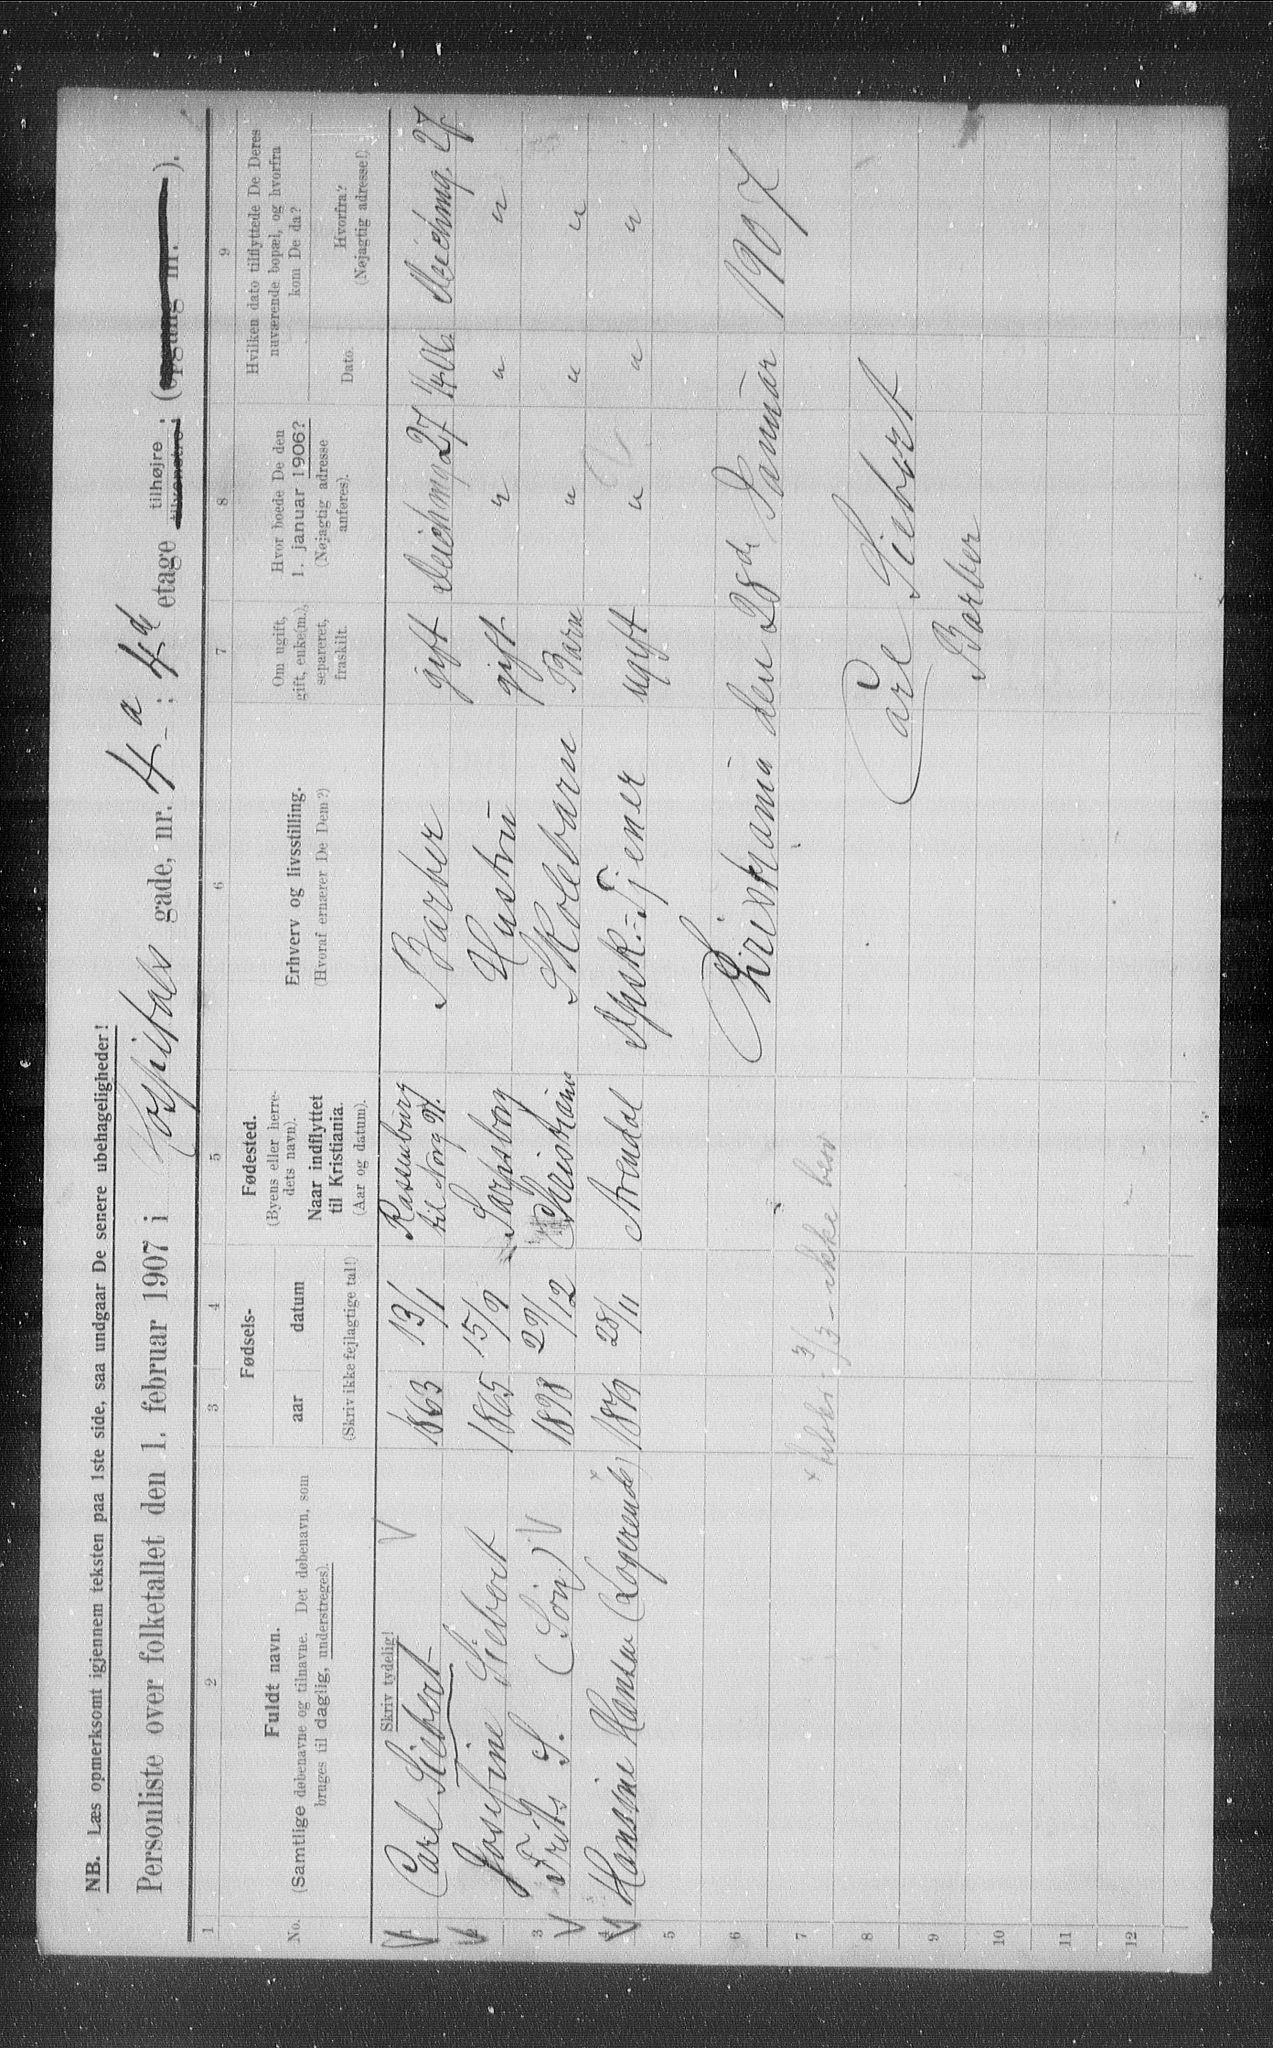 NB. Læs opmerksomt igjennem teksten paa 1ste side, saa undgaar De senere ubehageligheder!
Personliste over folketallet den 1. februar 1907 i Hospitals gade, nr. 4a; 4d etage tilhøjre; tilvenstre; (opgang nr. ).
1 2 3 4 5 6 7 8 9
No.
Fuldt navn.
(Samtlige døbenavne og tilnavne. Det døbenavn, som
bruges til daglig, understreges).
Fødsels-
aar datum
(Skriv ikke fejlagtige tal!)
Fødested.
(Byens eller herre-
dets navn).
Naar indflyttet
til Kristiania.
(Aar og datum).
Erhverv og livsstilling.
(Hvoraf ernærer De Dem?)
Om ugift,
gift, enke(m.),
separeret,
fraskilt.
Hvor boede De den
1. januar 1906?
(Nøjagtig adresse
anføres).
Hvilken dato tilflyttede De Deres
nuværende bopæl, og hvorfra
kom De da?
Dato.
Hvorfra?
(Nøjagtig adresse!)
Skriv tydelig!
1 Carl Siebert 1863 13/1 til Norg 91. Barber gift 27 Meichmg. 27
2 Josefine Siebert 1865 15/9 Sarpsborg Hustru gift " " "
3 Frits S. (Søn) 1898 29/12 Christiania Skolebarn Barn " " "
4 Hansine Hansen (Logerende) 1879 28/11 Arendal Apek.-Tjener ugift " " "
5
6 Christiania den 28de Januar 1907
7
8 Carl Siebert
9 Barber
10
11
12
3/3 - ikke